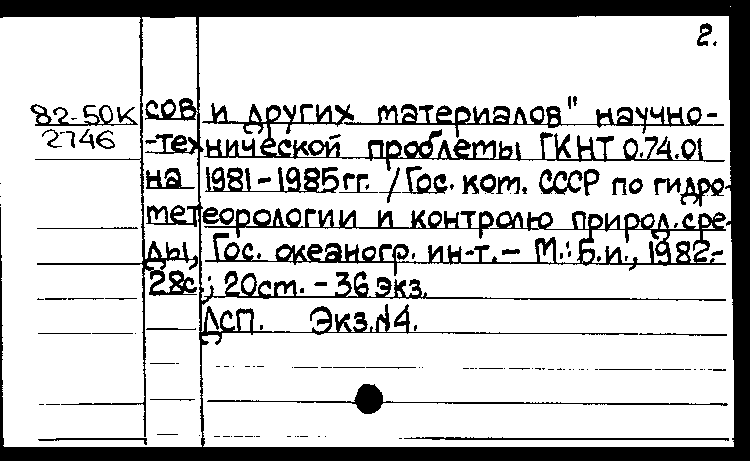 2.
82-50К
2746
сов и других материалов" научно-
-технической проблемы ГКНТ 0.74.01
на 1981-1985гг. /Гос. ком. СССР по гидро-
метеорологии и контролю природ. сре-
ды, Гос. океаногр. ин-т.- М.: Б.и., 1982.-
28с.; 20см. - 36 экз.
ДСП. Экз.N4.